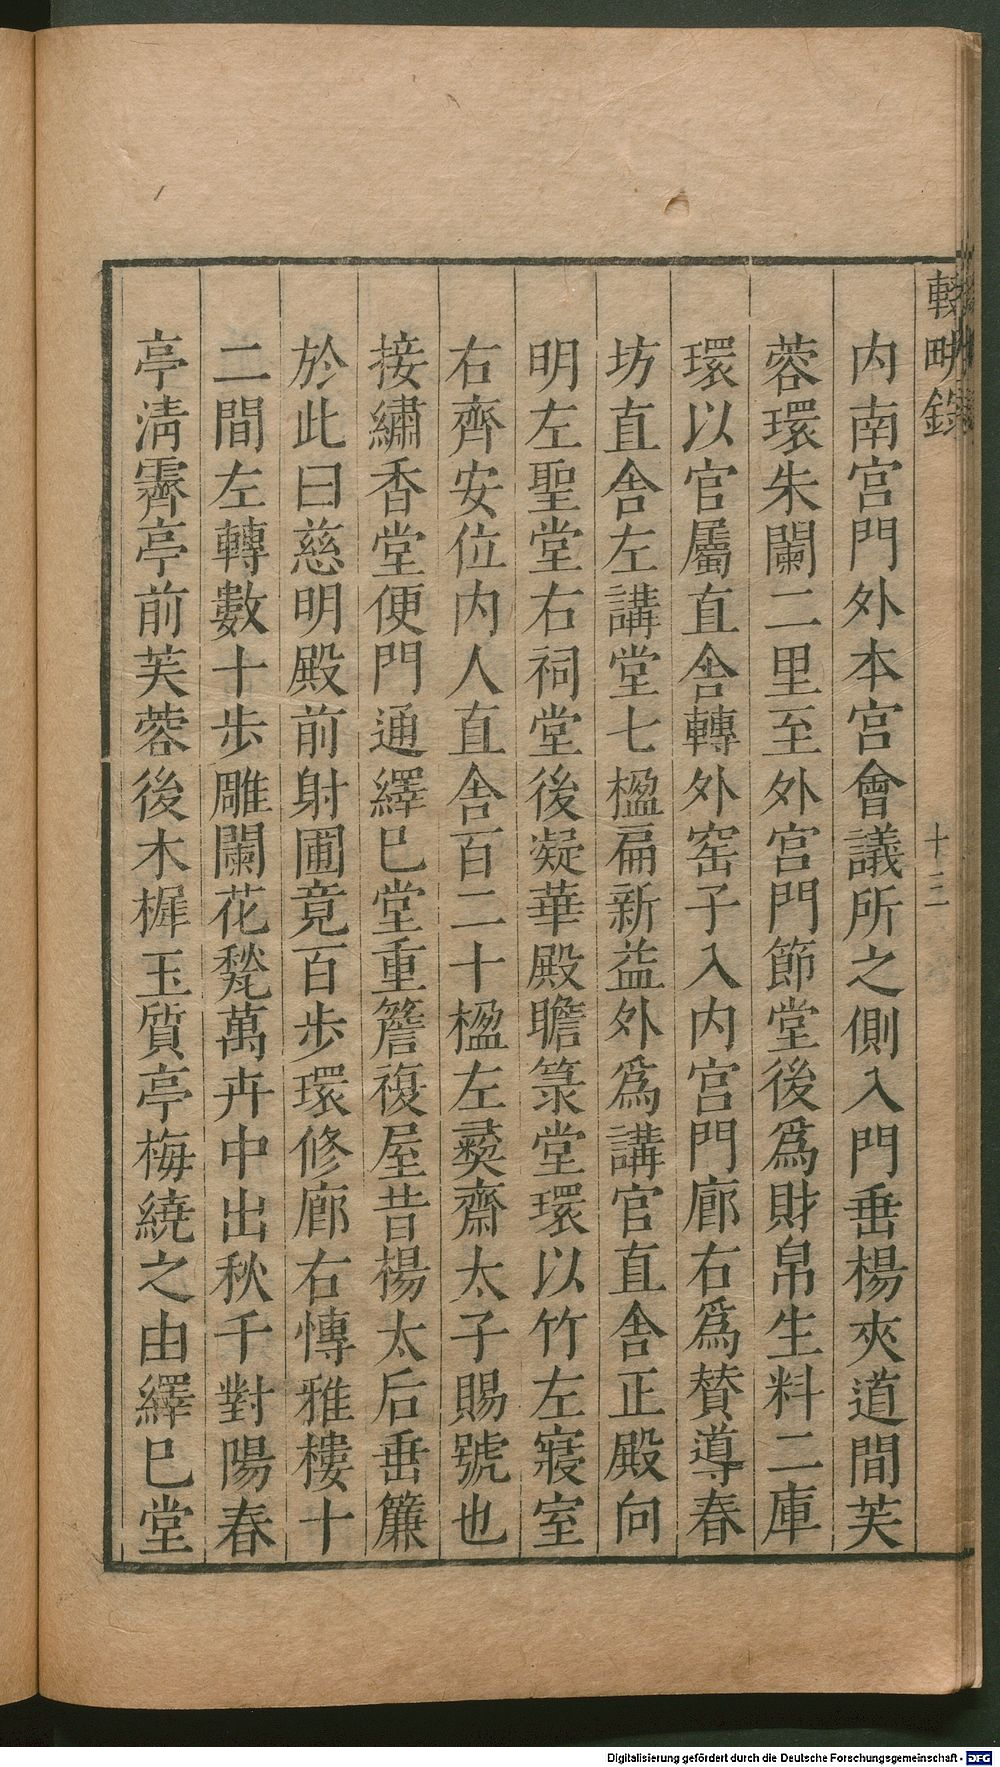 輟畊錄
十三
内南宮門外本宮會議所之側入門垂楊夾道間芙
蓉環朱闌二里至外宮門節堂後爲財帛生料二庫
環以官屬直舍轉外窑子入内宮門廊右爲贊導春
坊直舍左講堂七楹扁新益外爲講官直舍正殿向
明左聖堂右祠堂後凝華殿瞻箓堂環以竹左寢室
右齊安位内人直舍百二十楹左彝齋太子賜號也
接繡香堂便門通繹巳堂重簷複屋昔楊太后垂簾
於此曰慈明殿前射圃竟百步環修廊右慱雅樓十
二間左轉數十步雕闌花甃萬卉中出秋千對陽春
亭淸霽亭前芙蓉後木樨玉質亭梅繞之由繹巳堂
Digitalisierung gefördert durch die Deutsche Forschungsgemeinschaft - DFG